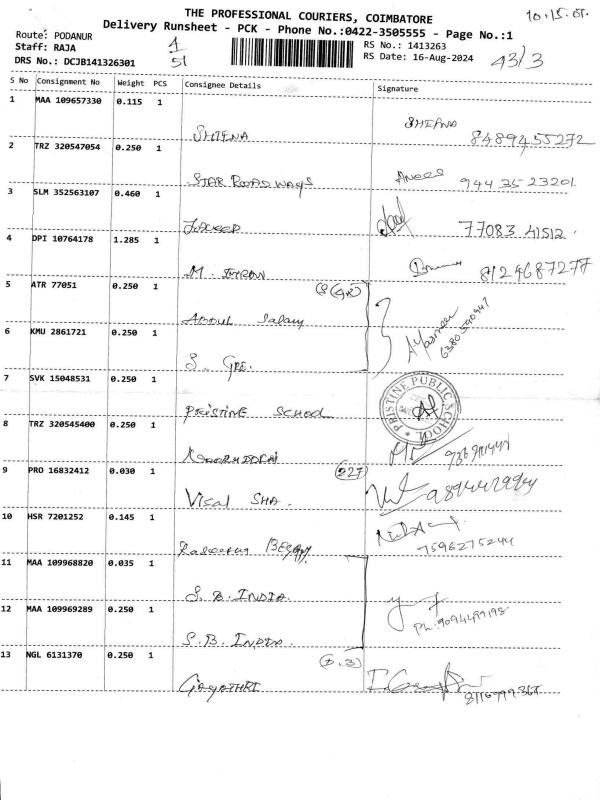 THE PROFESSIONAL COURIERS, COIMBATORE
Delivery Runsheet - PCK - Phone No.:0422-3505555 - Page No.:1
Route: PODANUR
Staff: RAJA
DRS No.: DCJB141326301
1
51
RS No.: 1413263
RS Date: 16-Aug-2024
43/3
S No Consignment No Weight PCS Consignee Details Signature
1 MAA 109657330 0.115 1
SHIENA 8489455272
2 TRZ 320547054 0.250 1
STAR ROAD WAYS 94435 23201
3 SLM 352563107 0.460 1
77083 41512
4 DPI 10764178 1.285 1
M. IMRAN 8124687277
5 ATR 77051 0.250 1
ABDUL Salam
6 KMU 2861721 0.250 1
7 SVK 15048531 0.250 1
PRISTINE SCHOOL
PRISTINE PUBLIC SCHOOL
8 TRZ 320545400 0.250 1
9 PRO 16832412 0.030 1
(227)
Visal SHA.
10 HSR 7201252 0.145 1
BEGAM 7598275244
11 MAA 109968820 0.035 1
S. B. INDIA.
12 MAA 109969289 0.250 1
Ph:9094499198
S.B. INDIA.
13 NGL 6131370 0.250 1
GAYATHRI